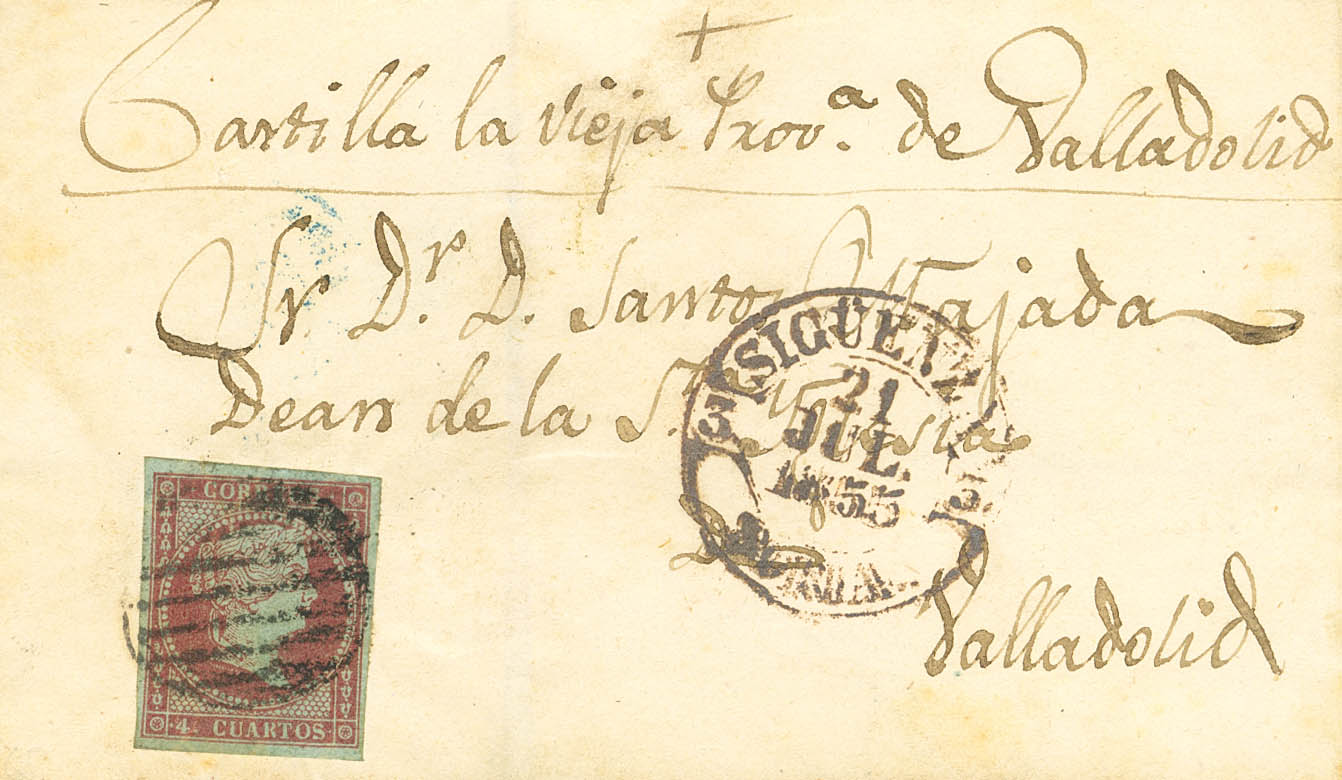 Castilla la Vieja Prov.ª de Valladolid
Sr. D.r D. Santos Majada
Dean de la S.ta Yglesia
SIGÜENZA
21
JUL.
1855
de
Valladolid
CORREOS
4 CUARTOS